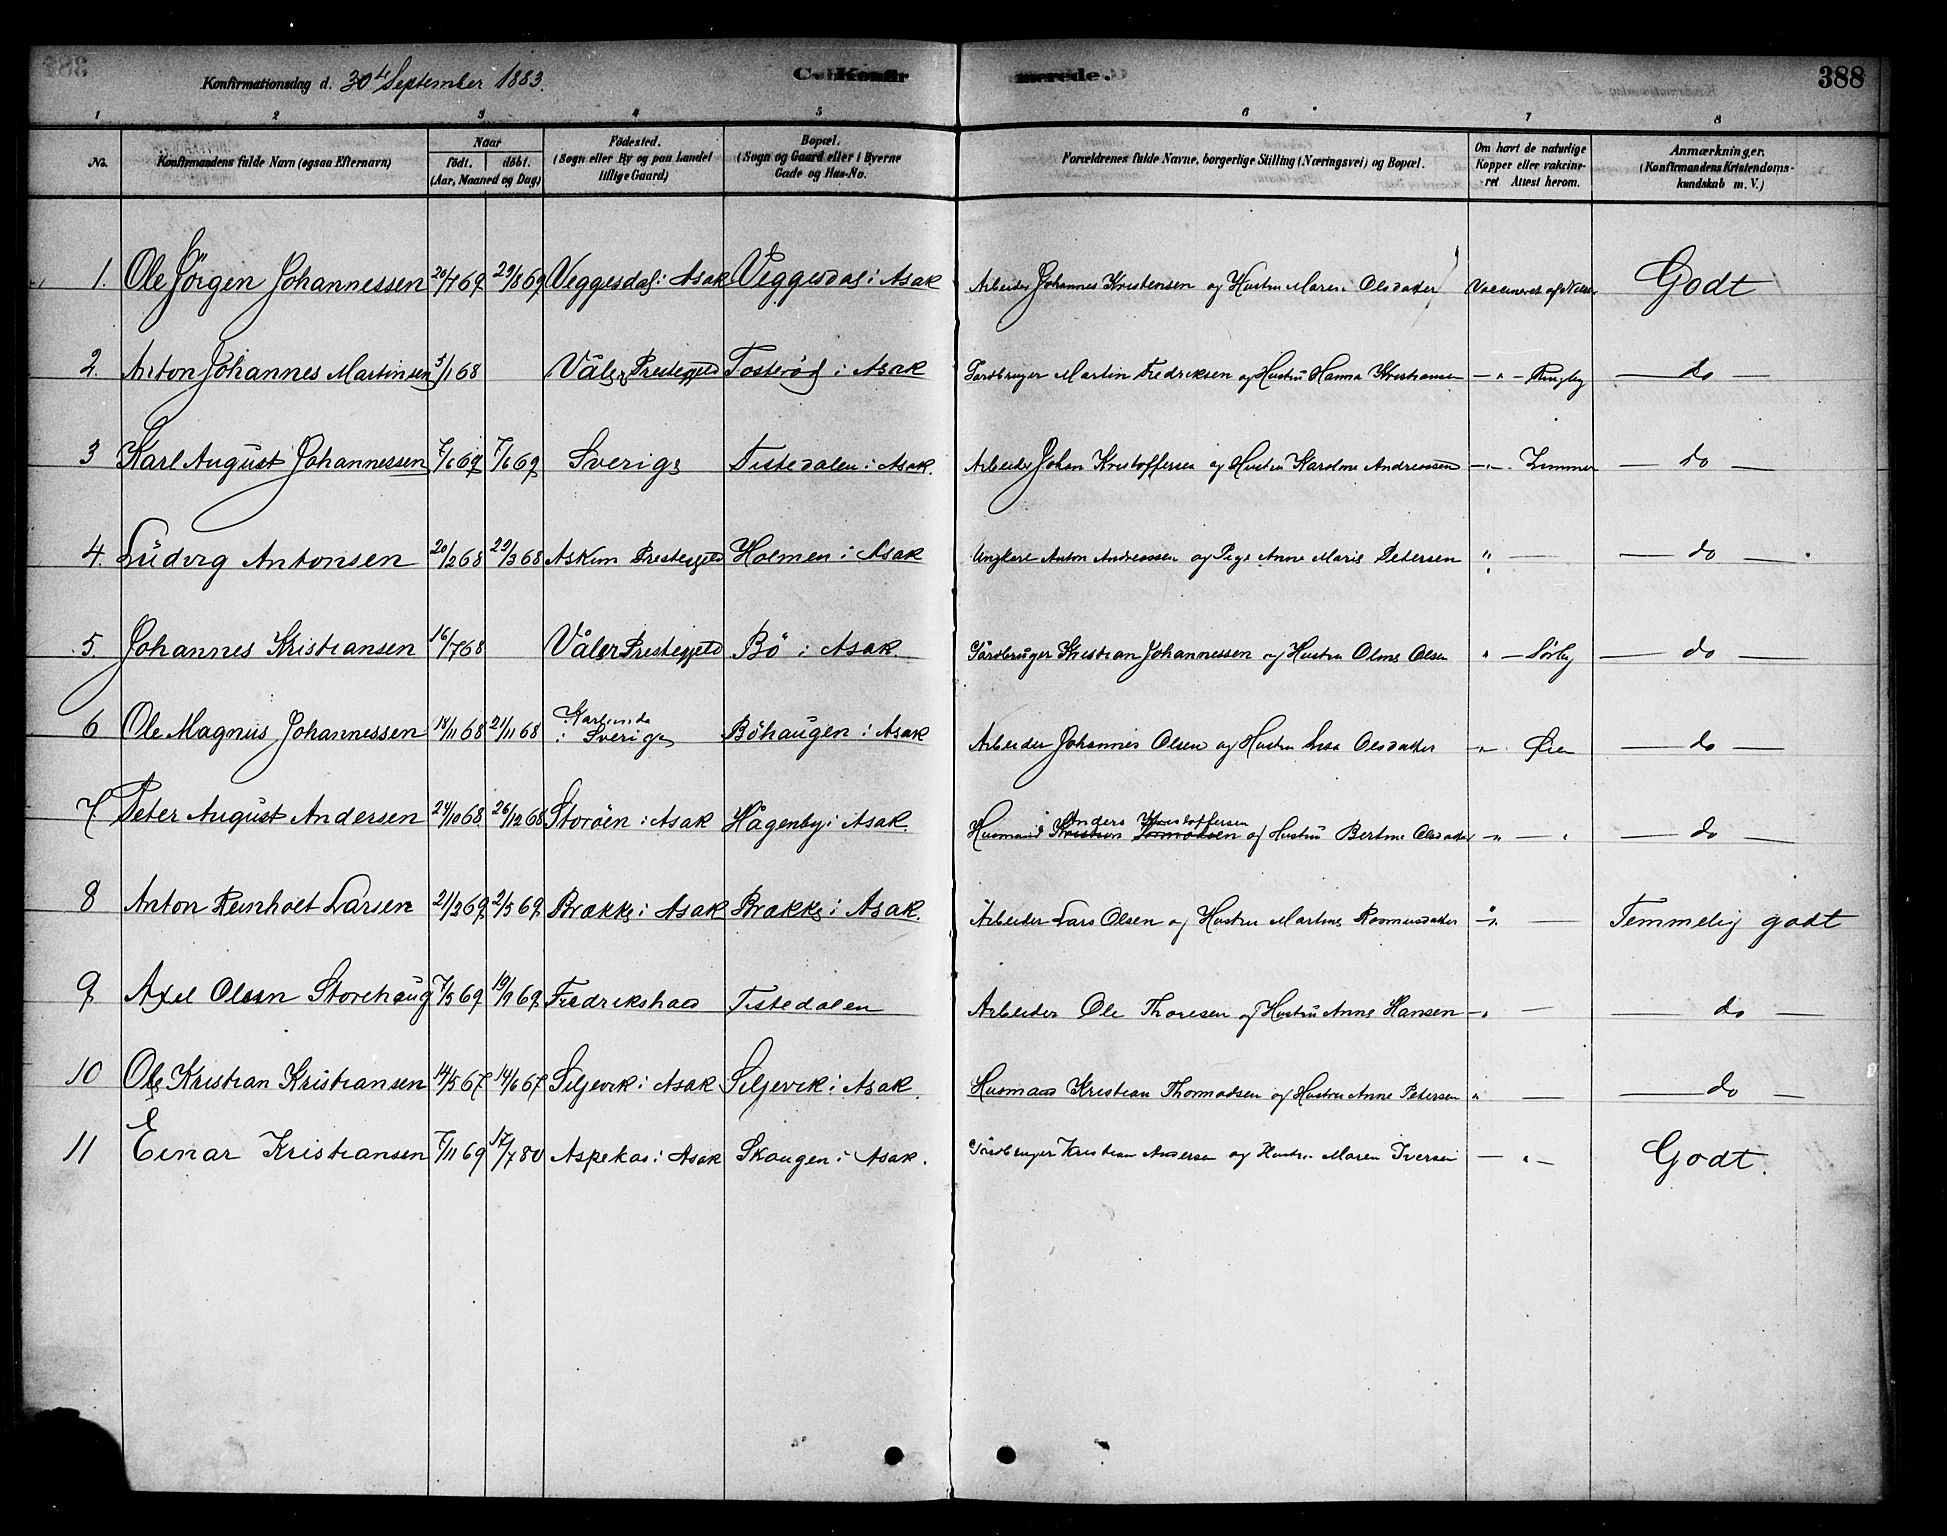 Konfirmationsdag d. 30te September 1883.
C. Konfirmerede.
388
1 2 3 4 5 6 7 8
No.
Konfirmandens fulde Navn (ogsaa Efternavn)
Naar
født. døbt.
(Aar, Maaned og Dag)
Fødested.
(Sogn eller By og paa Landet
tillige Gaard)
Bopæl.
(Sogn og Gaard eller i Byerne
Gade og Hus-No.
Forældrenes fulde Navne, borgerlige Stilling (Næringsvei) og Bopæl.
Om havt de naturlige
Kopper eller vakcine-
ret Attest herom.
Anmærkninger.
(Konfirmandens Kristendoms-
kundskab m. V.)
1. Ole Jörgen Johannessen 20/7 69 29/8 69 Veggesdal i Asak Veggesdal i Asak Arbeider Johannes Kristensen og Hustru Maren Olsdatter Vaccineret af Godt
2. Anton Johannes Martinsen 5/1 68 Våler Prestegjeld Tosterød i Asak Gårdbruger Martin Fredriksen og Hustrü Hanna Kristiansen — " — Ringby — do —
3 Karl August Johannessen 7/6 69 7/6 69 Sverige Tistedalen i Asak. Arbeider Johan Kristoffersen og Hustru Karoline Andreassen — " — Zimmer — do —
4. Lüdvig Antonsen 20/2 68 29/3 68 Askim Prestegjeld Holmen i Asak Ungkarl Anton Andreassen og Pige Anne Marie Petersen " — — do —
5. Johannes Kristiansen 16/7 68 Våler Prestegjeld Bö i Asak Gårdbruger Kristian Johannessen og Hustru Oline Olsen " — Sörby — do —
6 Ole Magnüs Johannessen 18/11 68 21/11 68
i Sverige Böhaugen i Asak Arbeider Johannes Olsen og Hustru Lisa Olsdatter — " — Øien — do —
7 Peter August Andersen 24/10 68 26/12 68 Storöen i Asak Hågenby i Asak. Husmand Anders Kristoffersen
Kristian Tormodsen og Hustrü Bertine Olsdatter — " — " — do —
8 Anton Reinholt Larsen 21/2 69 2/5 69 Brække i Asak Brække i Asak. Arbeider Lars Olsen og Hustru Martine Rasmusdatter — " — Temmelig godt
9 Axel Olsen Storehaug 7/5 69 19/9 69 Fredrikshald Tistedalen Arbeider Ole Thoresen og Hustrü Anne Hansen — " — — do —
10 Ole Kristian Kristiansen 14/5 67 14/6 67 Siljevik i Asak Siljevik i Asak. Husmand Kristian Thormodsen og Hustru Anne Petersen " — — do —
11 Einar Kristiansen 7/11 69 17/7 80 Aspekas i Asak Skaugen i Asak. Gårdbruger Kristian Andersen og Hustru Maren Iversen — " — Godt.